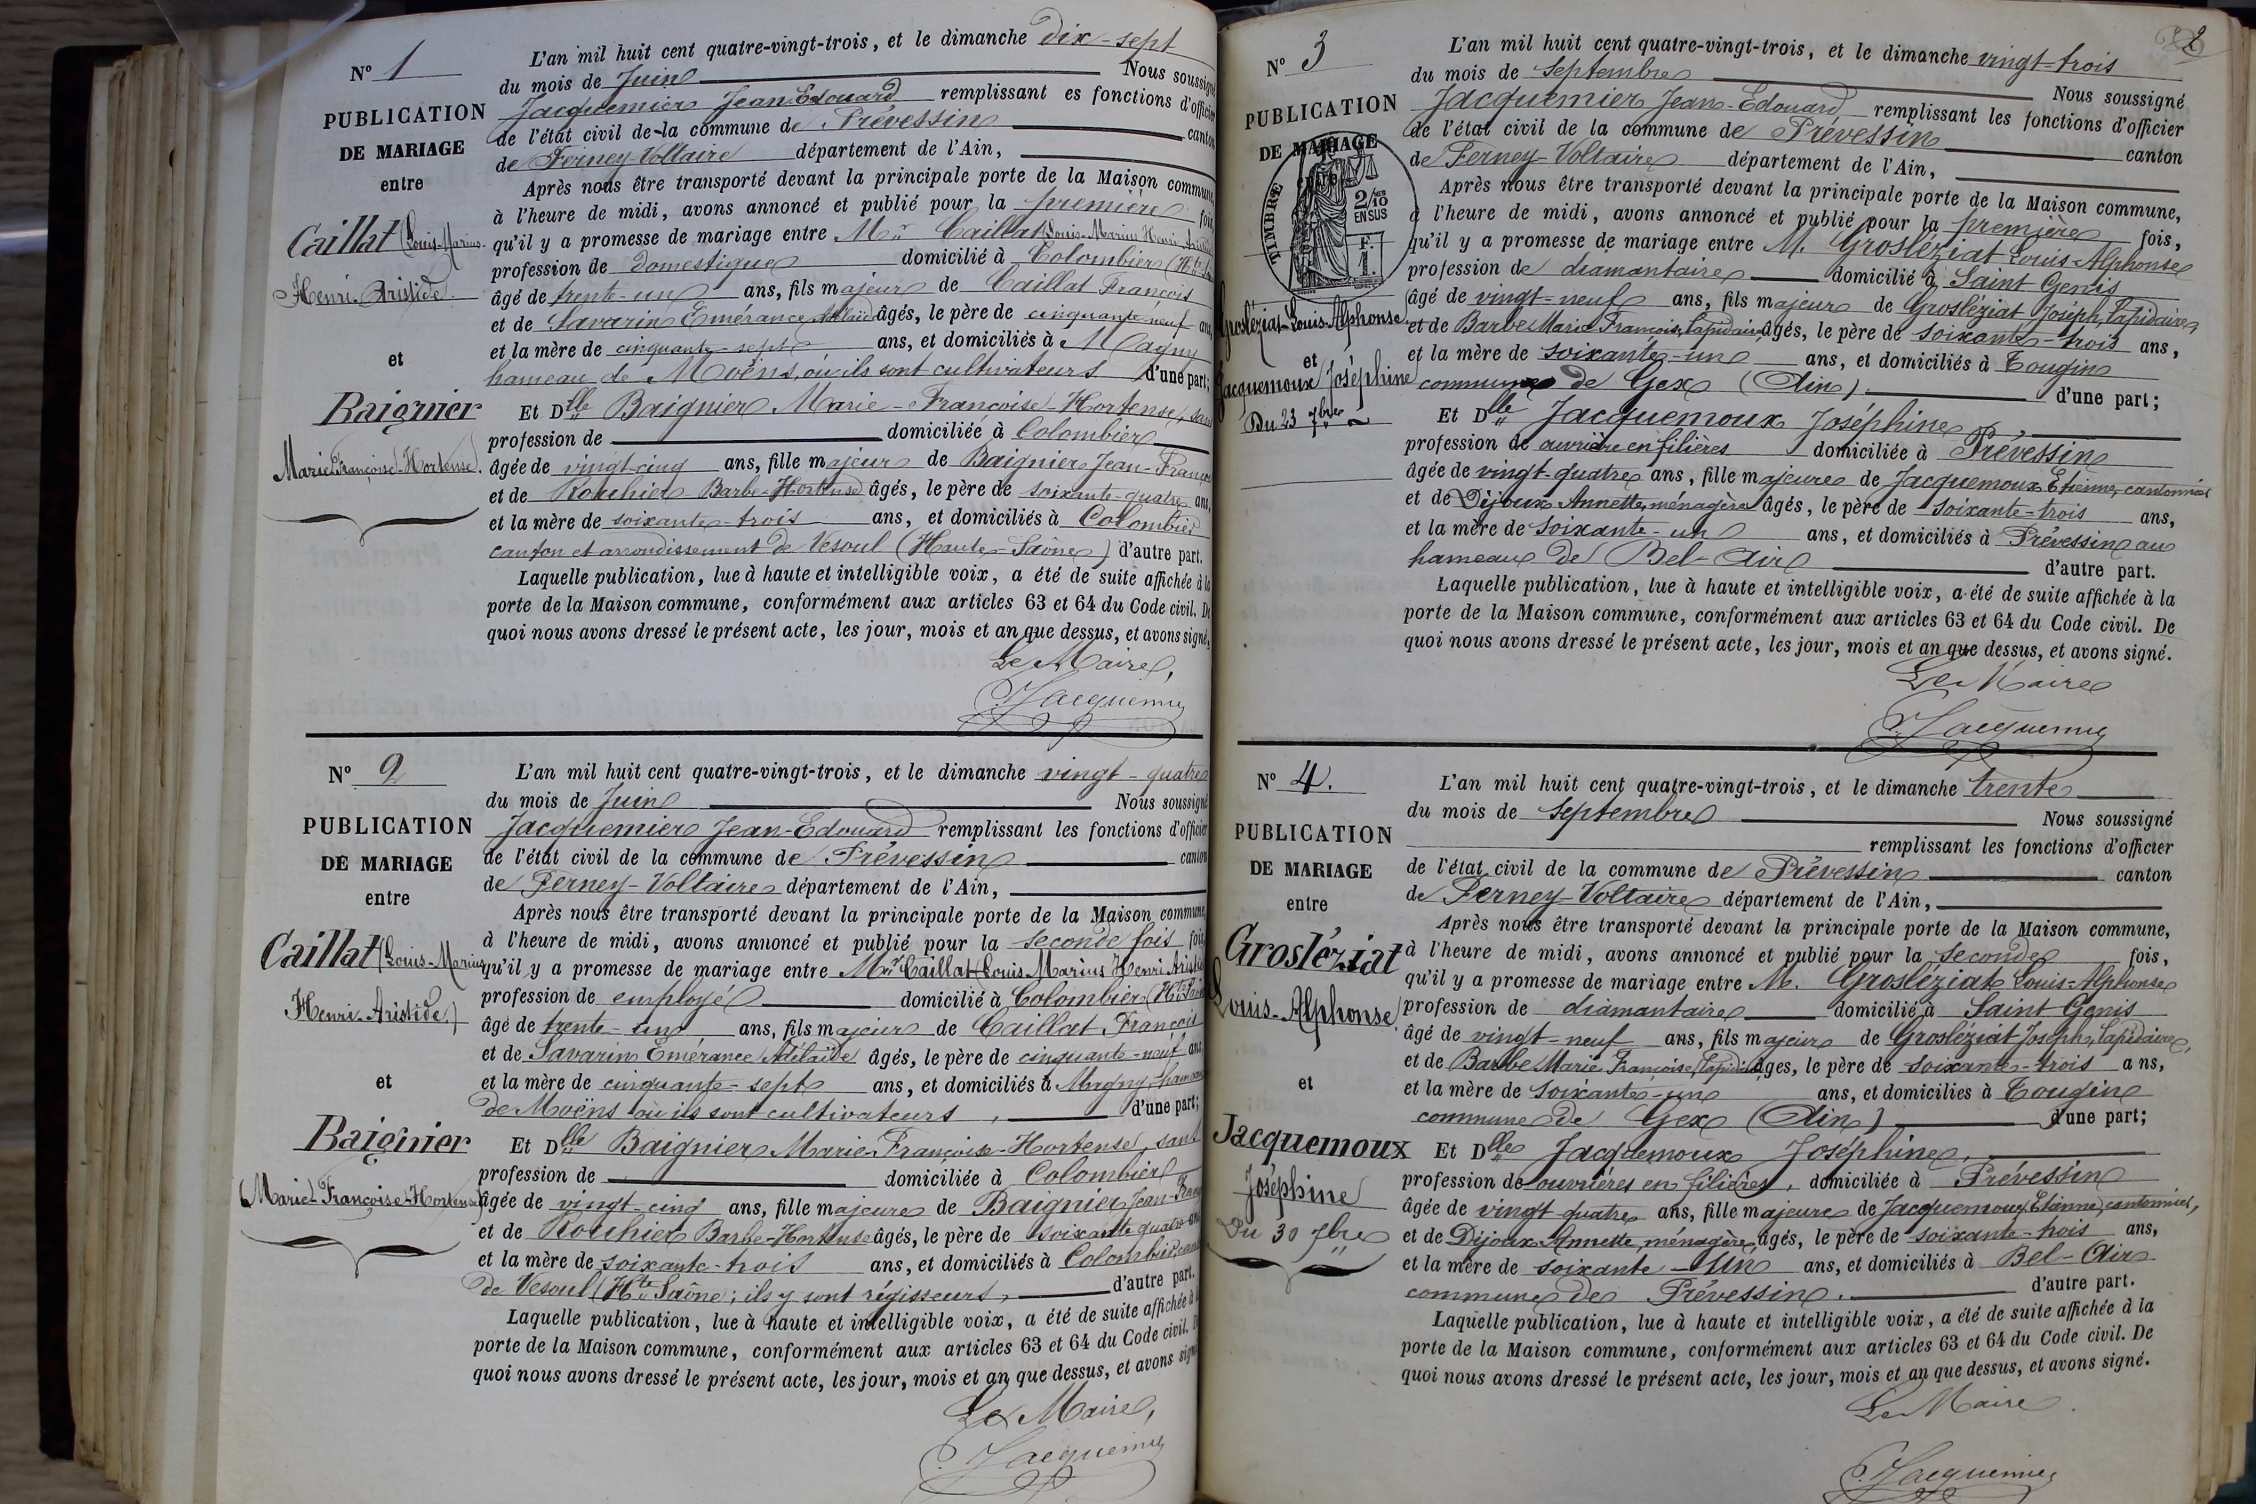 N° 1
PUBLICATION
DE MARIAGE
entre
Caillat (Louis-Marius
Henri-Aristide
et
Baignier
Marie Françoise-Hortense).
L'an mil huit cent quatre-vingt-trois, et le dimanche dix-sept
du mois de Juin Nous soussigné
Jacquemier Jean-Edouard remplissant es fonctions d'officier
de l'état civil de la commune de Prévessin canton
de Ferney-Voltaire département de l'Ain,
Après nous être transporté devant la principale porte de la Maison commune,
à l'heure de midi, avons annoncé et publié pour la première fois,
qu'il y a promesse de mariage entre Mr Caillat Louis-Marius Henri Aristide
profession de domestique domicilié à Colombier (Hte
âgé de trente-un ans, fils majeur de Caillat François
et de Savarin Emérance Adélaïde âgés, le père de cinquante-neuf ans,
et la mère de cinquante-sept ans, et domiciliés à Magny
hameau de Moëns, où ils sont cultivateurs d'une part;
Et Dlle Baignier Marie-Françoise-Hortense, sans
profession de domiciliée à Colombier
âgée de vingt-cinq ans, fille majeur de Baignier Jean-François
et de Rouhier Barbe-Hortense âgés, le père de soixante-quatre ans,
et la mère de soixante-trois ans, et domiciliés à Colombier
canton et arrondissement de Vesoul (Haute-Saône) d'autre part.
Laquelle publication, lue à haute et intelligible voix, a été de suite affichée à la
porte de la Maison commune, conformément aux articles 63 et 64 du Code civil. De
quoi nous avons dressé le présent acte, les jour, mois et an que dessus, et avons signé.
Le Maire,
Jacquemier
N° 2
PUBLICATION
DE MARIAGE
entre
Caillat (Louis-Marius
Henri-Aristide)
et
Baignier
(Marie-Françoise-Hortense)
L'an mil huit cent quatre-vingt-trois, et le dimanche vingt-quatre
du mois de Juin Nous soussigné
Jacquemier Jean-Edouard remplissant les fonctions d'officier
de l'état civil de la commune de Prévessin canton
de Ferney-Voltaire département de l'Ain,
Après nous être transporté devant la principale porte de la Maison commune,
à l'heure de midi, avons annoncé et publié pour la seconde fois fois,
qu'il y a promesse de mariage entre Mr Caillat Louis Marius Henri Aristide
profession de employé domicilié à Colombier (Hte Saône
âgé de trente-un ans, fils majeur de Caillat François
et de Savarin Emérance Adélaïde âgés, le père de cinquante-neuf ans
et la mère de cinquante-sept ans, et domiciliés à Magny, hameau
de Moëns où ils sont cultivateurs, d'une part;
Et Dlle Baignier Marie-Françoise-Hortense, sans
profession de domiciliée à Colombier
âgée de vingt-cinq ans, fille majeure de Baignier Jean-Franç
et de Rouhier Barbe-Hortense âgés, le père de soixante quatre ans
et la mère de soixante-trois ans, et domiciliés à Colombier
de Vesoul (Hte Saône; ils y sont régisseurs, d'autre part.
Laquelle publication, lue à haute et intelligible voix, a été de suite affichée à
porte de la Maison commune, conformément aux articles 63 et 64 du Code civil. D
quoi nous avons dressé le présent acte, les jour, mois et an que dessus, et avons signé
Le Maire,
Jacquemier
2
N° 3
PUBLICATION
DE MARIAGE
entre
TIMBRE
2/10
EN SUS
F.
1.
Grosléziat-Louis-Alphonse
et
Jacquemoux Joséphine
Du 23 7bre
L'an mil huit cent quatre-vingt-trois, et le dimanche vingt-trois
du mois de Septembre Nous soussigné
Jacquemier Jean-Edouard remplissant les fonctions d'officier
de l'état civil de la commune de Prévessin canton
de Ferney-Voltaire département de l'Ain,
Après nous être transporté devant la principale porte de la Maison commune,
à l'heure de midi, avons annoncé et publié pour la première fois,
qu'il y a promesse de mariage entre M. Grosléziat Louis-Alphonse
profession de diamantaire domicilié à Saint Genis
âgé de vingt-neuf ans, fils majeur de Grosléziat Joséph, lapidaire,
et de Barbe Marie Françoise, lapidaire âgés, le père de soixante-trois ans,
et la mère de soixante-un ans, et domiciliés à Tougin
commune de Gex (Ain) d'une part;
Et Dlle Jacquemoux Joséphine,
profession de ouvrière en filières domiciliée à Prévessin
âgée de vingt-quatre ans, fille majeure de Jacquemoux Etienne, cantonnier
et de Dijoux Annette, ménagère âgés, le père de soixante-trois ans,
et la mère de soixante-un ans, et domiciliés à Prévessin au
hameau de Bel-Air d'autre part.
Laquelle publication, lue à haute et intelligible voix, a été de suite affichée à la
porte de la Maison commune, conformément aux articles 63 et 64 du Code civil. De
quoi nous avons dressé le présent acte, les jour, mois et an que dessus, et avons signé.
Le Maire
Jacquemier
N° 4.
PUBLICATION
DE MARIAGE
entre
Grosléziat
Louis-Alphonse
et
Jacquemoux
Joséphine
Du 30 7bre
L'an mil huit cent quatre-vingt-trois, et le dimanche trente
du mois de Septembre Nous soussigné
remplissant les fonctions d'officier
de l'état civil de la commune de Prévessin canton
de Ferney-Voltaire département de l'Ain,
Après nous être transporté devant la principale porte de la Maison commune,
à l'heure de midi, avons annoncé et publié pour la seconde fois,
qu'il y a promesse de mariage entre M. Grosléziat Louis-Alphonse
profession de diamantaire domicilié à Saint Genis
âgé de vingt-neuf ans, fils majeur de Grosléziat Joseph, lapidaire,
et de Barbe Marie Françoise, lapidaire âges, le père de soixante-trois ans,
et la mère de soixante-un ans, et domiciliés à Tougin
commune de Gex (Ain) d'une part;
Et Dlle Jacquemoux Joséphine,
profession de ouvrières en filières, domiciliée à Prévessin
âgée de vingt quatre ans, fille majeure de Jacquemoux Etienne, cantonnier,
et de Dijoux Annette, ménagère âgés, le père de soixante-trois ans,
et la mère de soixante-un ans, et domiciliés à Bel-Air
commune de Prévessin. d'autre part.
Laquelle publication, lue à haute et intelligible voix, a été de suite affichée à la
porte de la Maison commune, conformément aux articles 63 et 64 du Code civil. De
quoi nous avons dressé le présent acte, les jour, mois et an que dessus, et avons signé.
Le Maire
Jacquemier